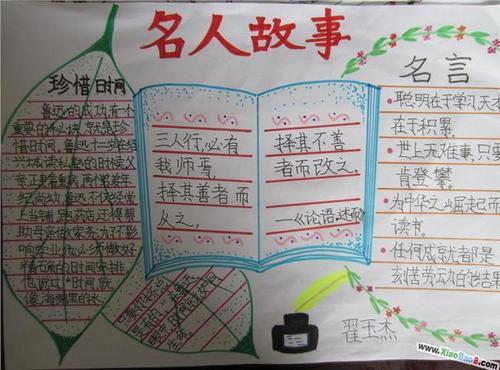 名人故事
珍惜时间
鲁迅的成功有个
重要的秘诀就是珍
惜时间,鲁迅十一岁在绍
兴城读私塾的时候父
亲正患着重病,两个弟弟年
纪尚幼,鲁迅不仅经常
上当铺,跑药店,还得帮
助母亲做家务,为不影
响学业,他必须做好
精确的时间安排
时间,就
像海绵里的水
三人行,必有
我师焉,
择其善者而
从之,
择其不善
者而改之。
——《论语·述而》
名言
聪明在于学习,天才
在于积累。
世上无难事,只要
肯登攀。
为中华之崛起而
读书。
任何成就都是
刻苦劳动的结果
翟玉杰
www.XiaoBao8.com